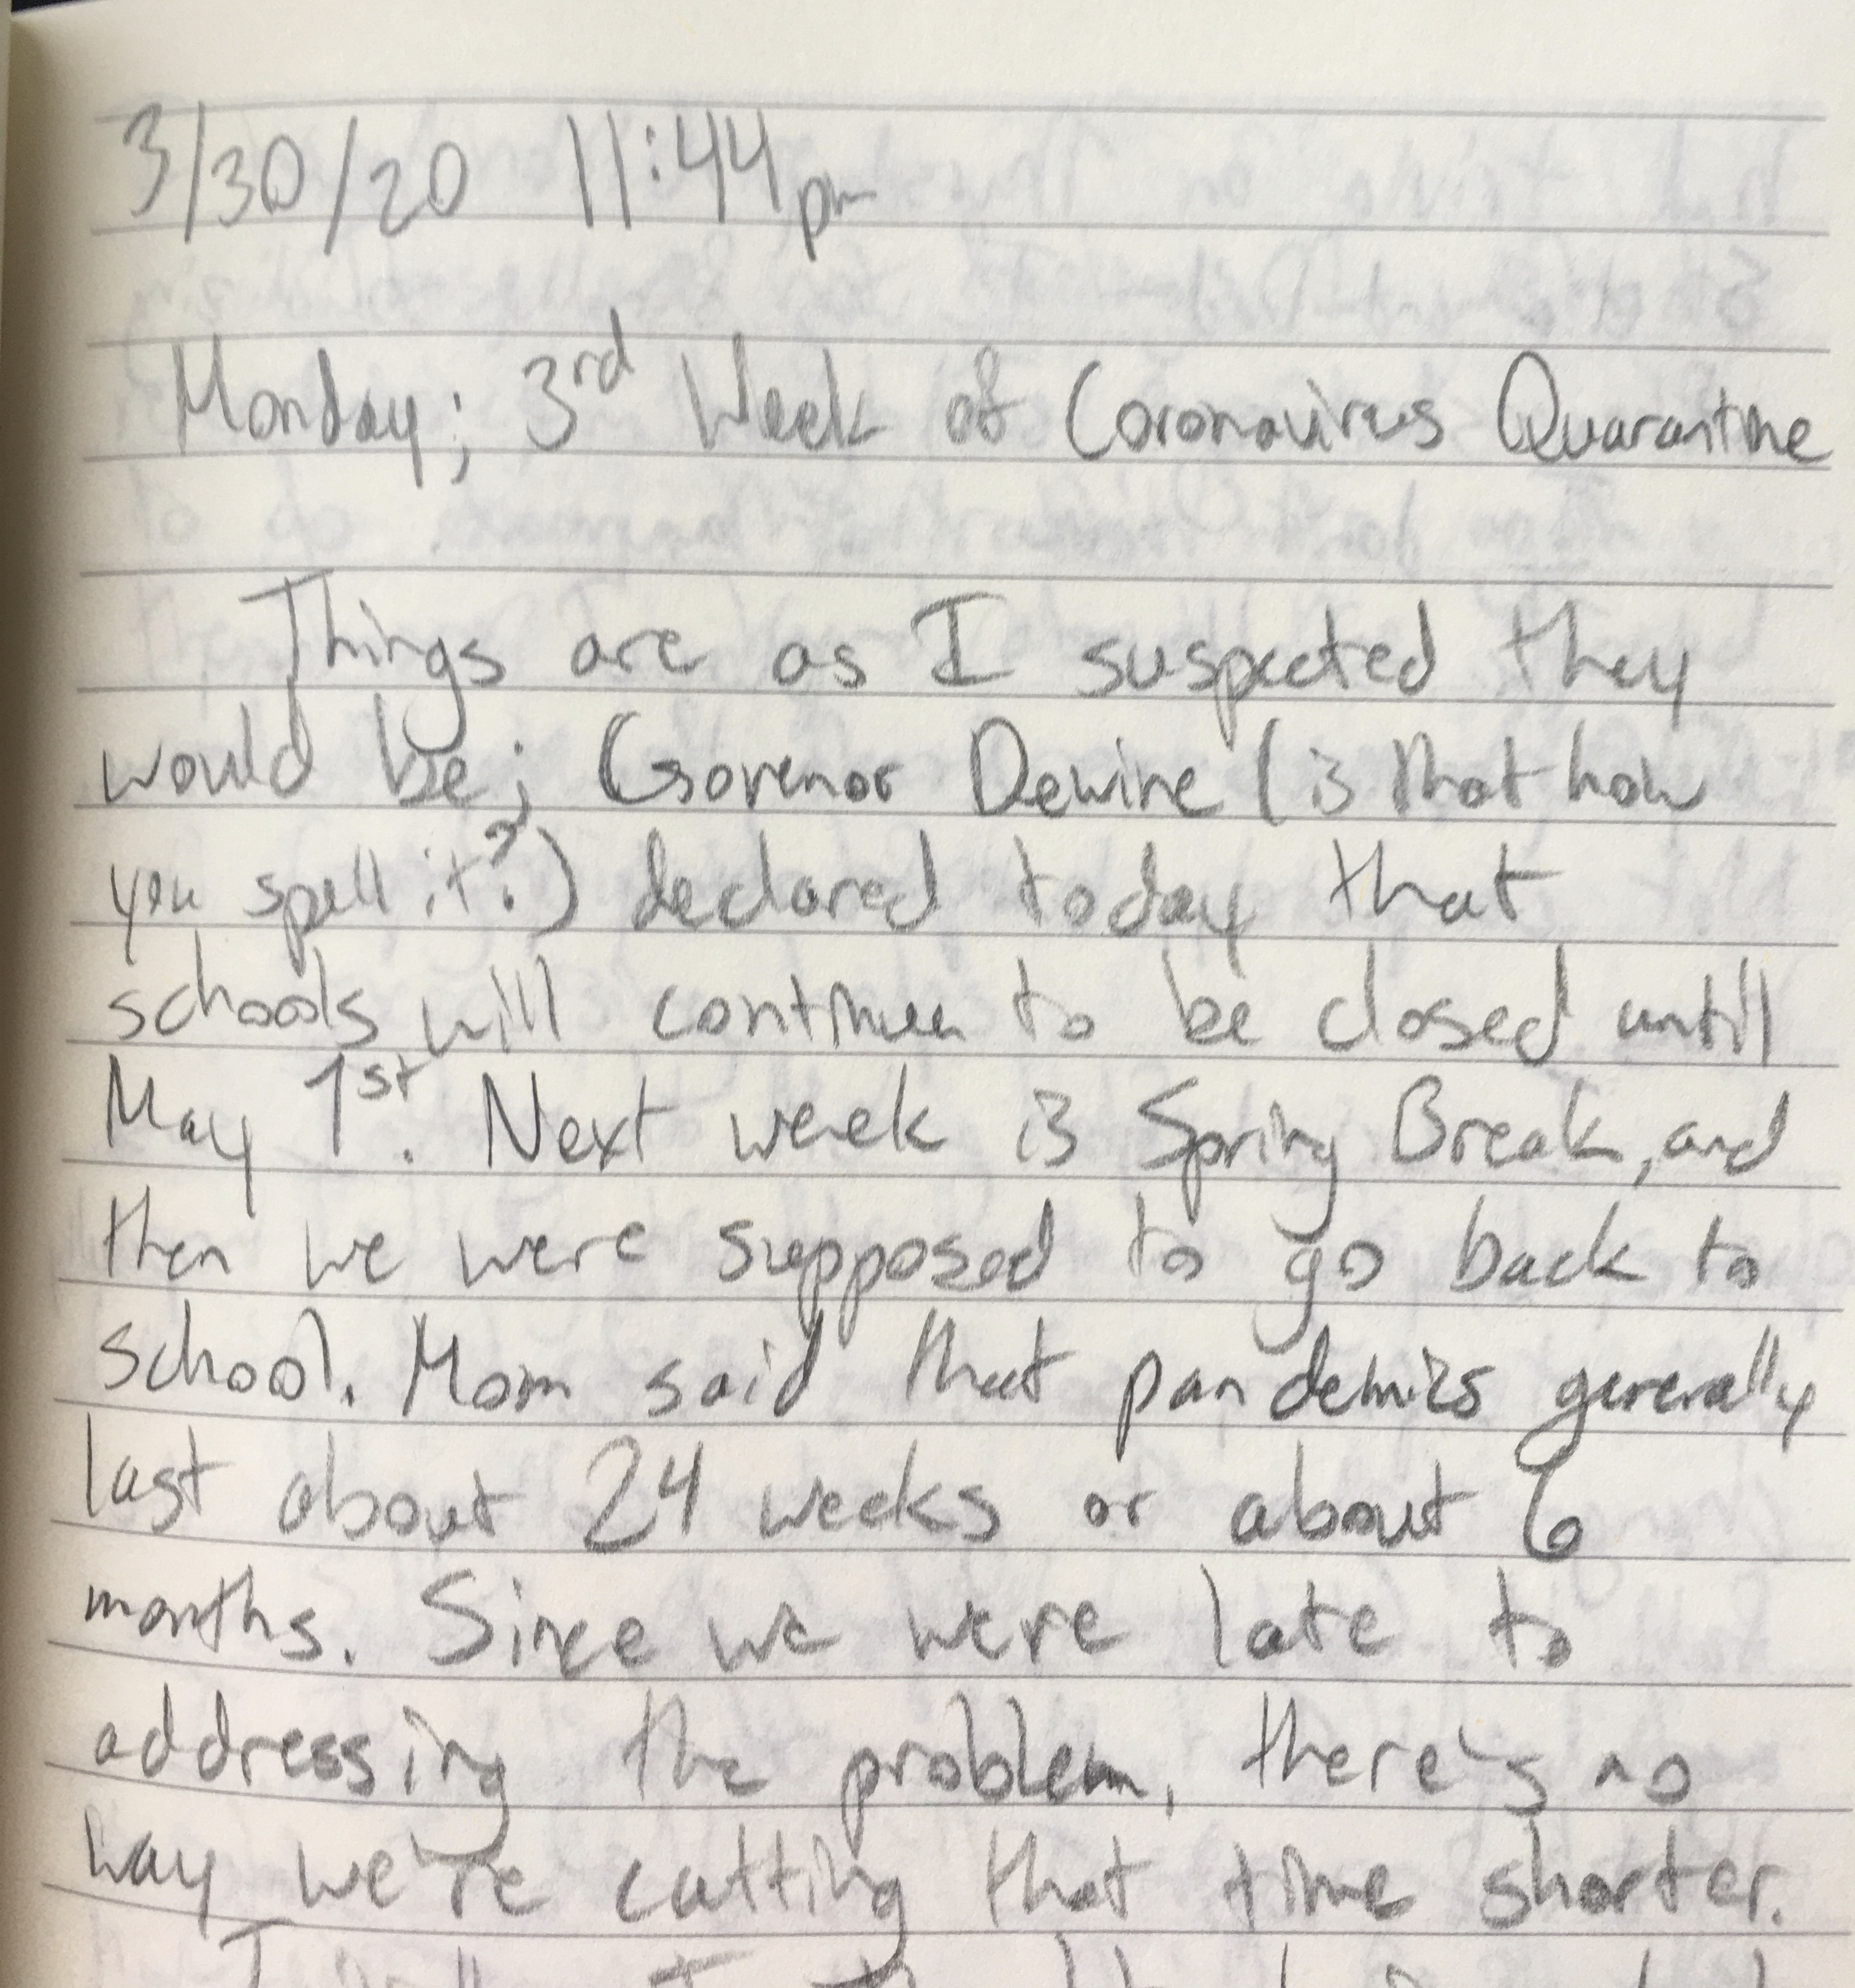 3/30/20 11:44pm
Monday; 3rd Week of Coronavirus Quarantine
Things are as I suspected they
would be; Govenor Dewine (is that how
you spell it?) declared today that
schools will continue to be closed until
May 1st. Next week is Spring Break, and
then we were supposed to go back to
school. Mom said that pandemics generally
last about 24 weeks or about 6
months. Since we were late to
addressing the problem, there's no
way we're cutting that time shorter.